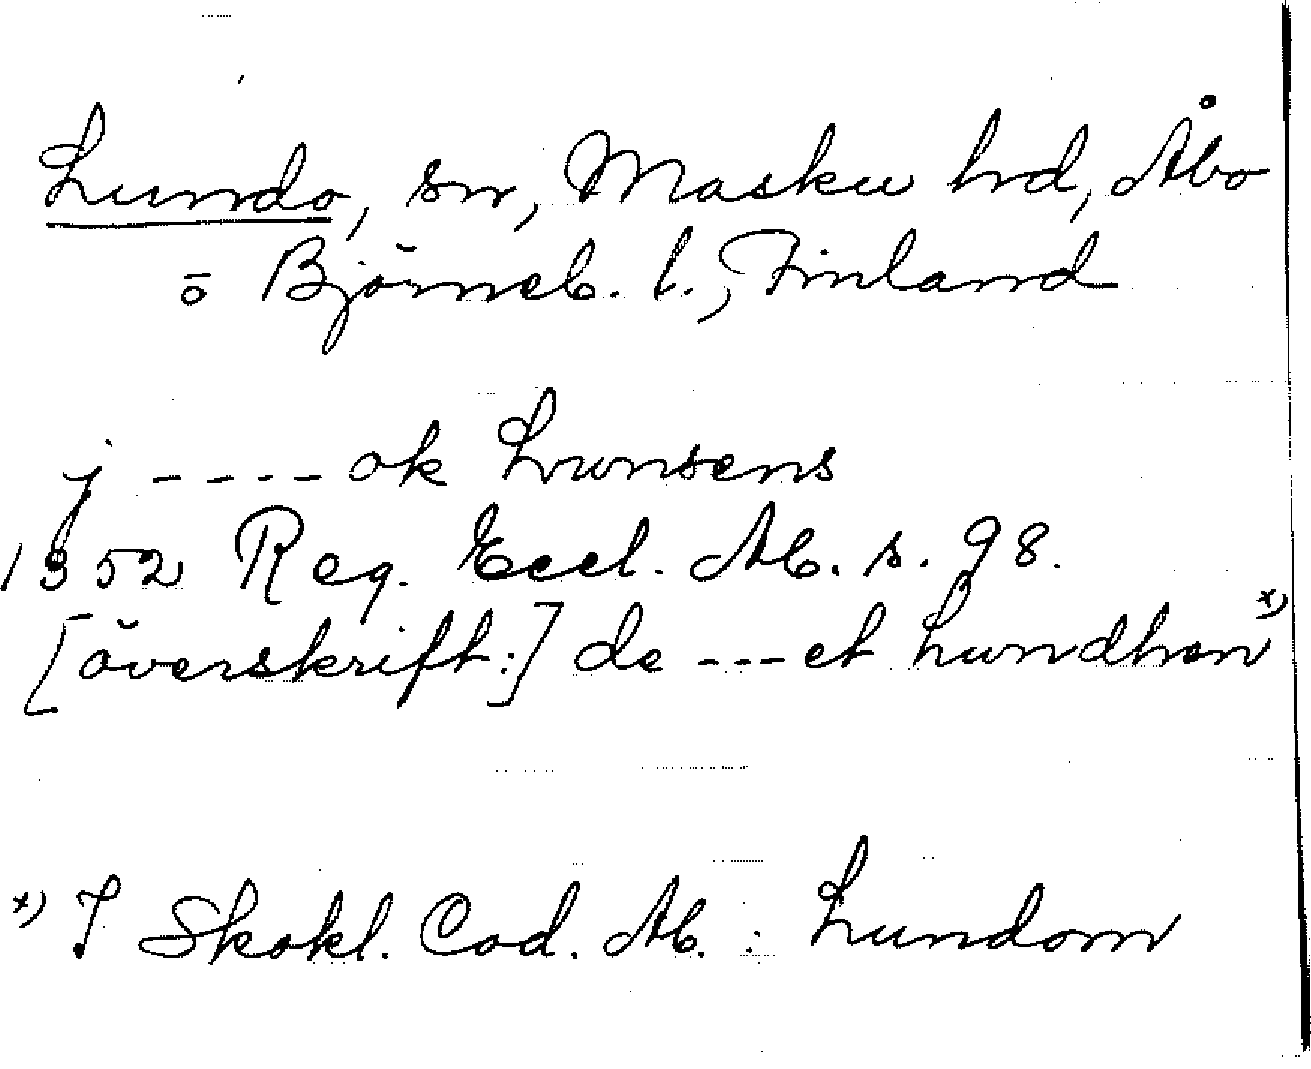 Lundo, sn, Masku hd, Åbo
o Björneb. l., Finland
j ---- ok Lwnsens
1352 Reg. Eccl. Ab. s. 98.
[överskrift:] de --- et Lundhen x)
x) I Skokl. Cod. Ab. : Lundom